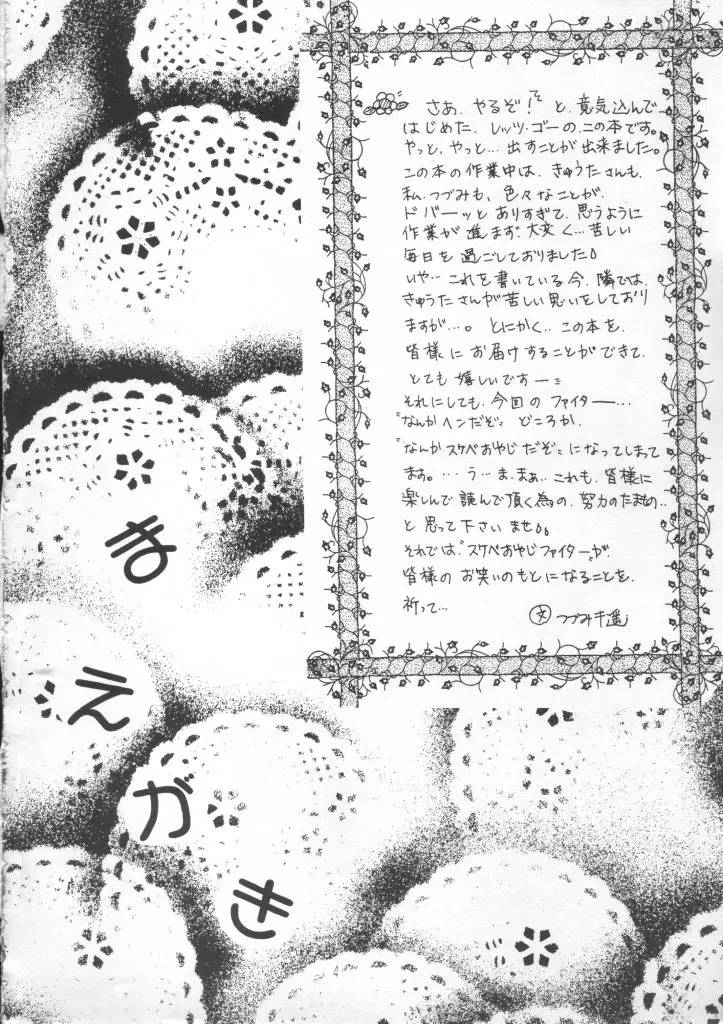 さあ、やるぞ!と、意気込んで
はじめた、レッツ・ゴーの、この本です。
やっと、やっと…出すことが出来ました。
この本の作業中は、きゅうたさんも、
私、つづみも、色々なことが、
ドバーッとありすぎて、思うように
作業が進まず、大変く…苦しい
毎日を過ごしておりました。
いや…これを書いている今、隣では、
きゅうたさんが苦しい思いをしており
ますが…。とにかく、この本を、
皆様にお届けすることができて、
とても嬉しいですー
それにしても、今回のファイター…
"なんかヘンだぞ"どころか、
"なんかスケベおやじだぞ"になってしまって
ます。…う…ま、まぁ、これも、皆様に
楽しんで読んで頂く為の、努力のたまもの‥
と思って下さいませ。
それでは"スケベおやじファイター"が、
皆様のお笑いのもとになることを、
祈って…
文 つづみ千遥
まえがき